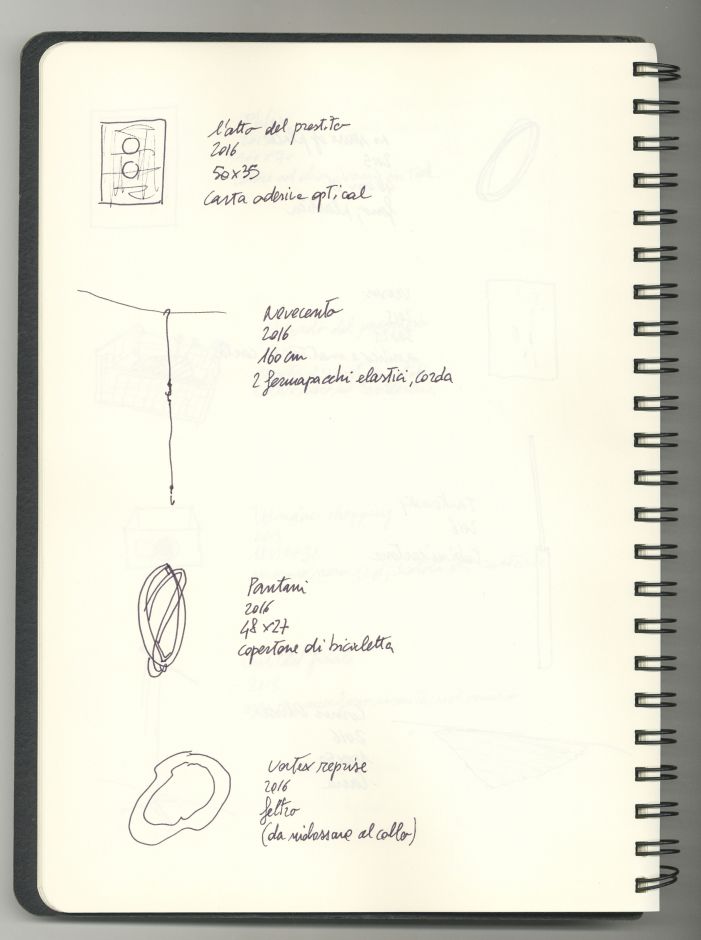 l'atto del prestito
2016
50x35
carta adesiva optical
Novecento
2016
160 cm
2 fermapacchi elastici, corda
Pantani
2016
48x27
copertone di bicicletta
vortex reprise
2016
feltro
(da indossare al collo)